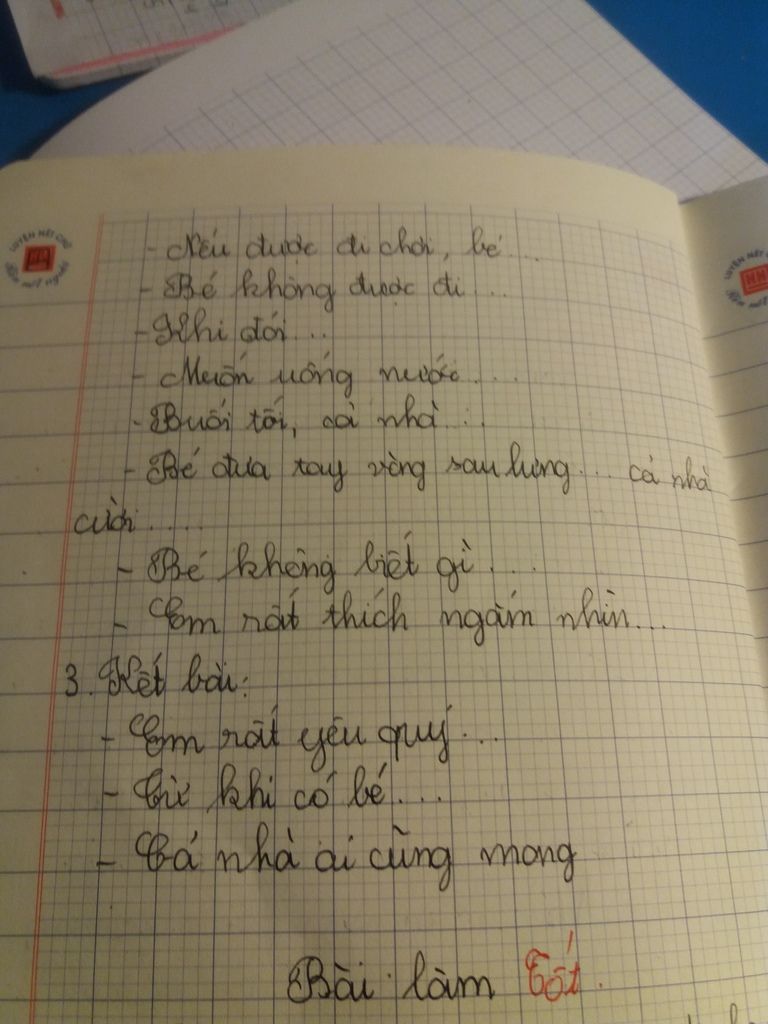 LUYỆN NÉT CHỮ
Rèn nết người
LUYỆN NÉT
HH
- Nếu được đi chơi, bé ...
- Bé không được đi ...
- Khi đói ...
- Muốn uống nước ....
- Buổi tối, cả nhà ...
- Bé đưa tay vòng sau lưng ... cả nhà
cười .....
- Bé không biết gì ...
- Em rất thích ngắm nhìn...
3. Kết bài:
- Em rất yêu quý ...
- Từ khi có bé ....
- Cả nhà ai cũng mong
Bài làm Tốt.